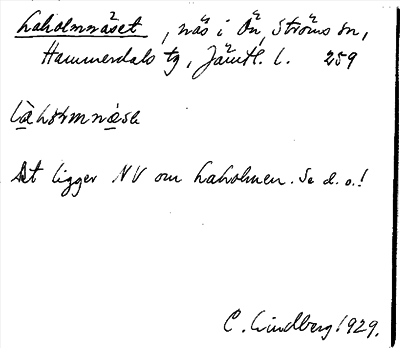 Laholmnäset, näs i Ön, Ströms sn,
Hammerdals tg, Jämtl. l. 259
Det ligger NV om Laholmen. Se d. o.!
C. Lindberg 1929.